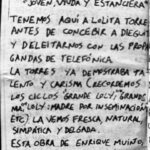 "JOVEN, VIUDA Y ESTANCIERA"
TENEMOS AQUÍ A LOLITA TORRE
ANTES DE CONCEBIR A DIEGUIT
Y DELEITARNOS CON LAS PROPA
GANDAS DE TELEFÓNICA.
LA TORRES YA DEMOSTRABA TA
LENTO Y CARISMA (RECORDEMOS
LOS CICLOS "GRANDE LOLY", "GRAN
MA", "LOLY: MADRE POR INSEMINACIÓN
ETC) LA VEMOS FRESCA, NATURAL,
SIMPÁTICA Y DELGADA.
ESTA OBRA DE ENRIQUE MUIÑO,